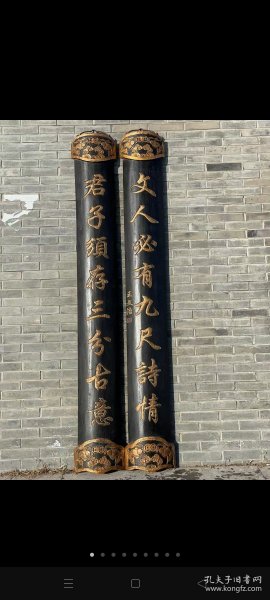 文人必有九尺詩情
君子須存三分古意
孔夫子旧书网
www.kongfz.com